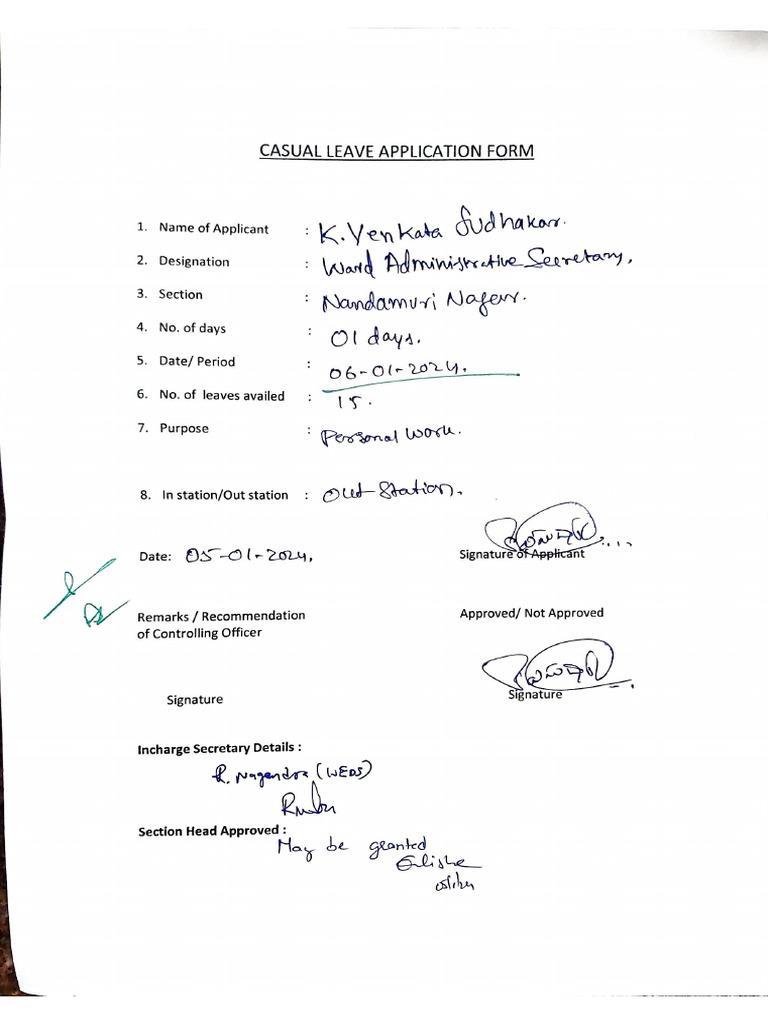 CASUAL LEAVE APPLICATION FORM
1. Name of Applicant : K. Venkata Sudhakar.
2. Designation : Ward Administrative Secretary.
3. Section : Nandamuri Nagar.
4. No. of days : 01 days.
5. Date/ Period : 06-01-2024.
6. No. of leaves availed : 15.
7. Purpose : Personal Work.
8. In station/Out station : Out-Station.
Date: 05-01-2024. Signature of Applicant
Remarks / Recommendation Approved/ Not Approved
of Controlling Officer
Signature Signature
Incharge Secretary Details :
R. Nagendra (WEDS)
Section Head Approved :
May be granted